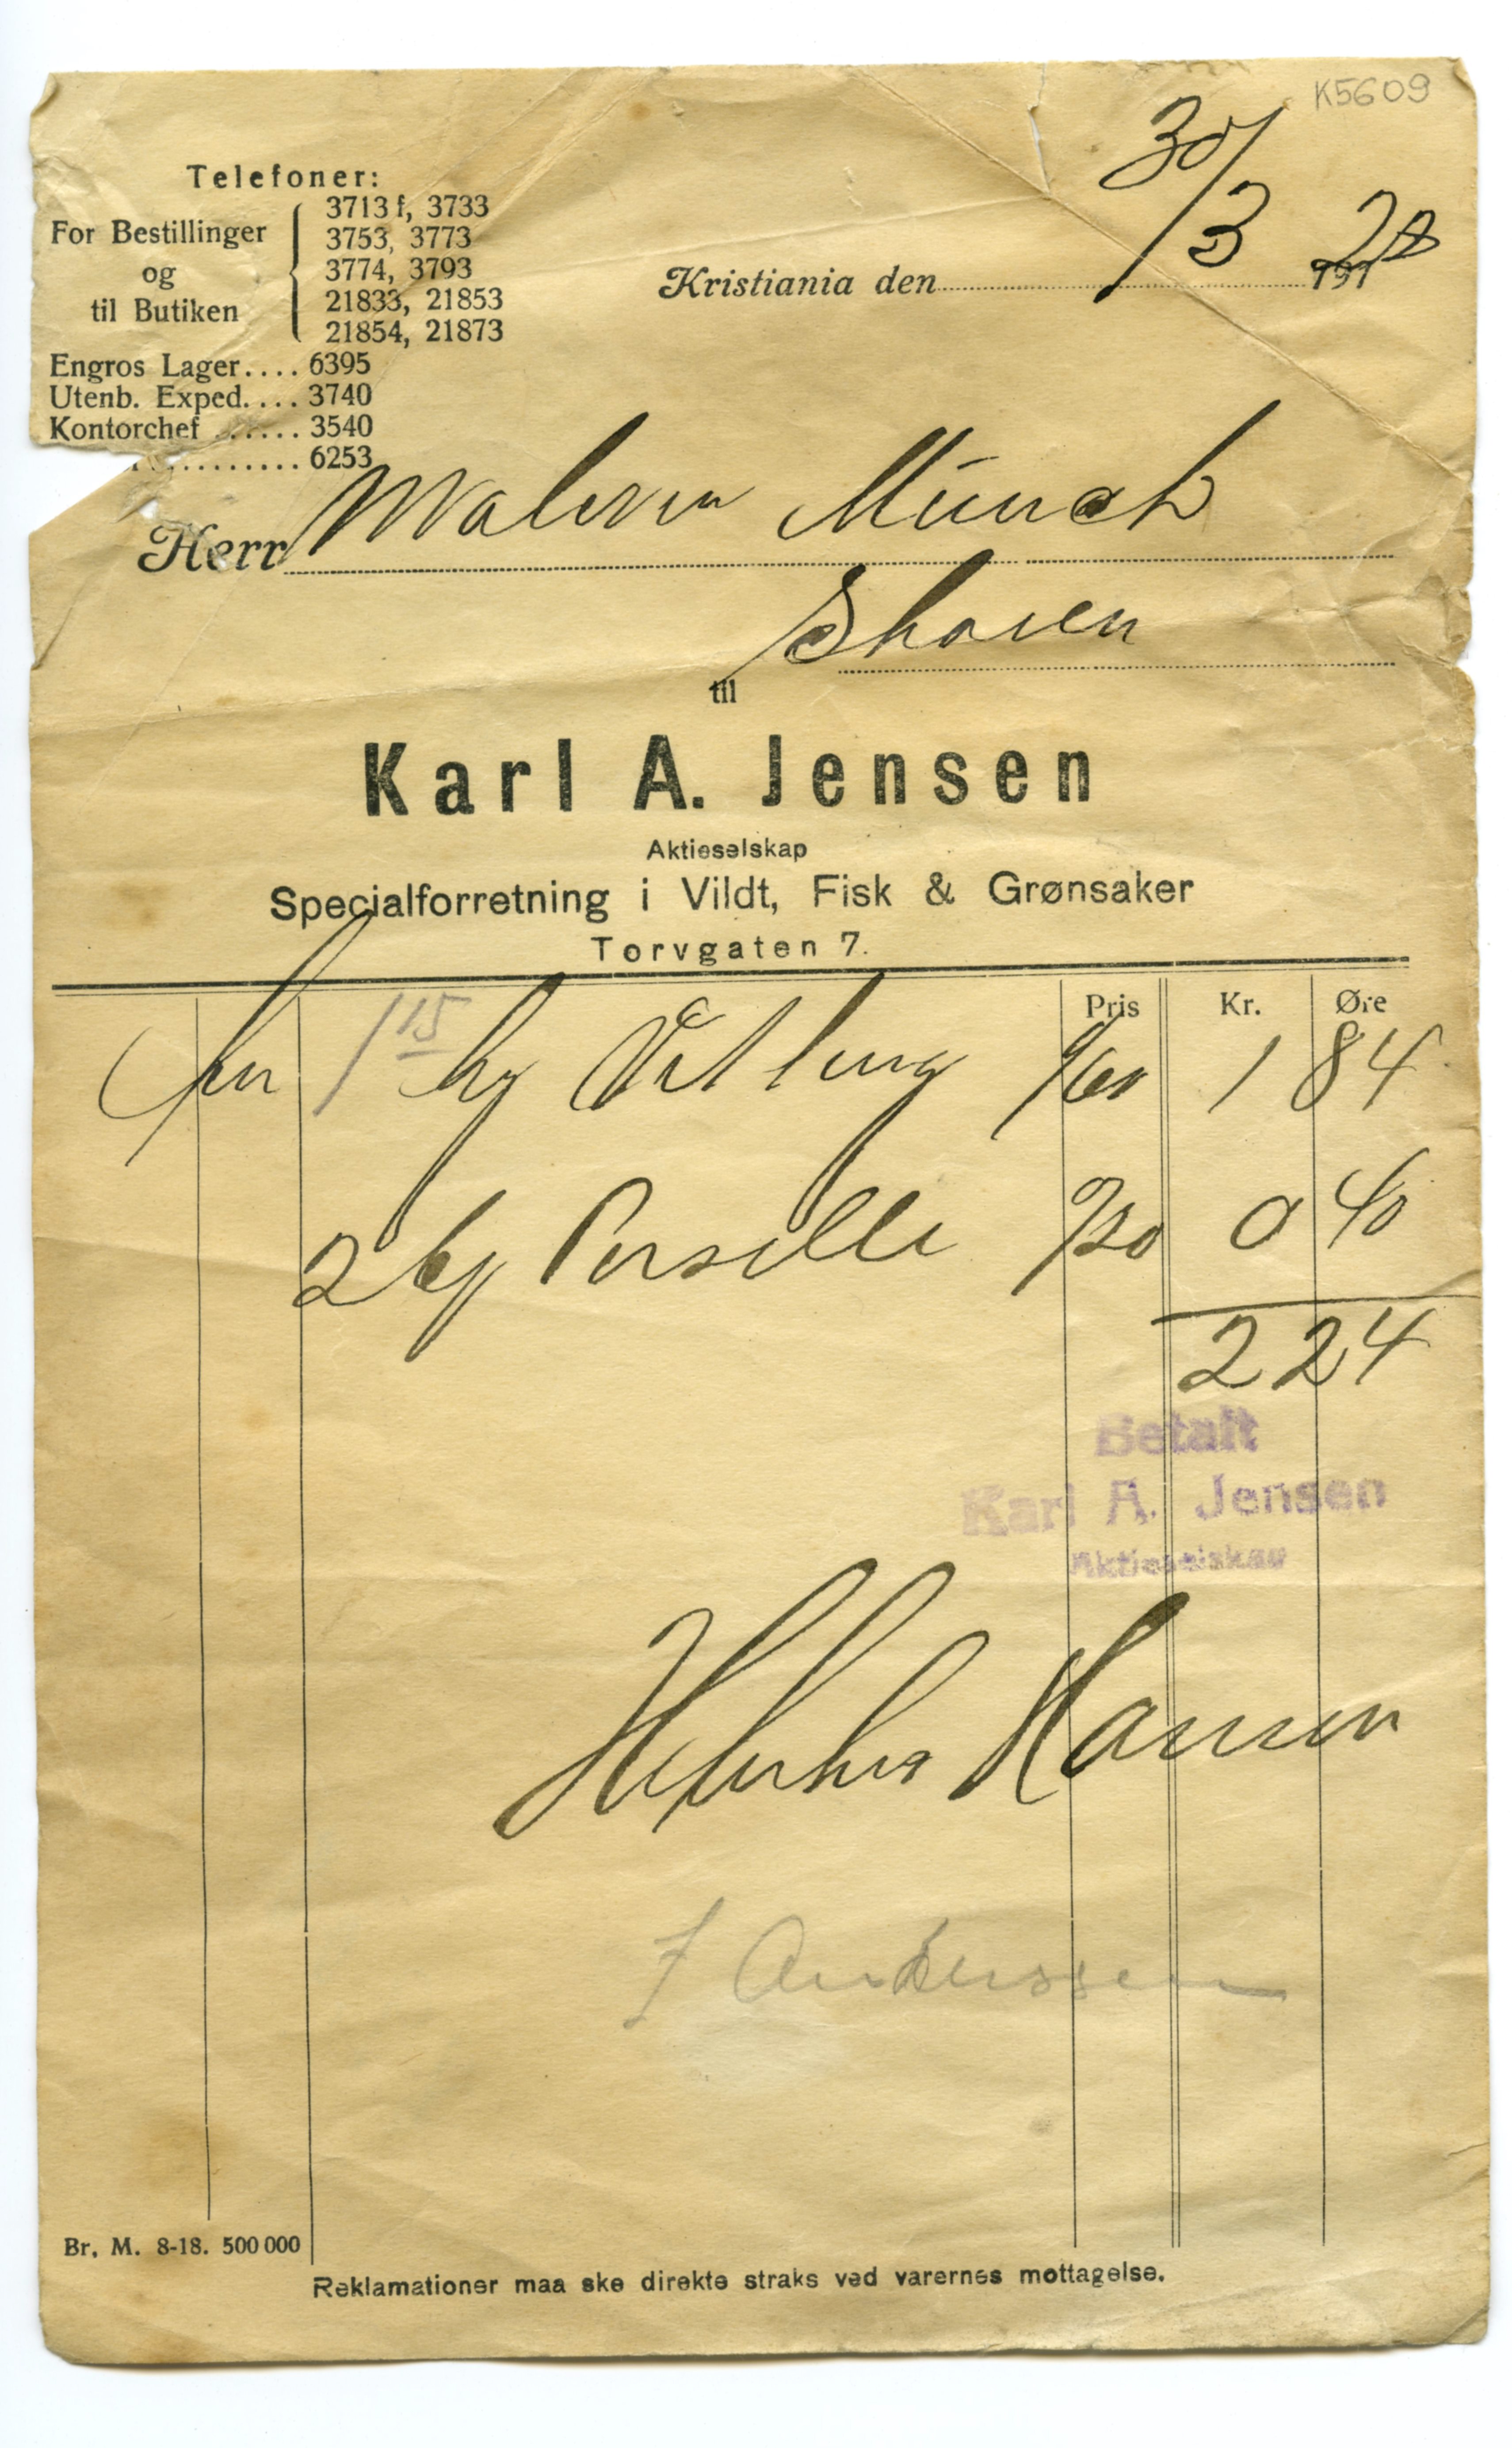 K5609
Telefoner:
For Bestillinger og til Butiken
3713 f, 3733
3753, 3773
3774, 3793
21833, 21853
21854, 21873
Engros Lager.... 6395
Utenb. Exped.... 3740
Kontorchef ...... 3540
......... 6253
30/3 20
Kristiania den 191
Herr Maleren Münch
Skøien
til
Karl A. Jensen
Aktieselskap
Specialforretning i Vildt, Fisk & Grønsaker
Torvgaten 7.
Pris Kr. Øre
1 15 kg Hvitling 160 1 84
2 bj Persille 20 0 40
2 24
Betalt
Karl A. Jensen
Aktieselskap
Hansen
J Anderssen
Br. M. 8-18. 500 000
Reklamationer maa ske direkte straks ved varernes mottagelse.